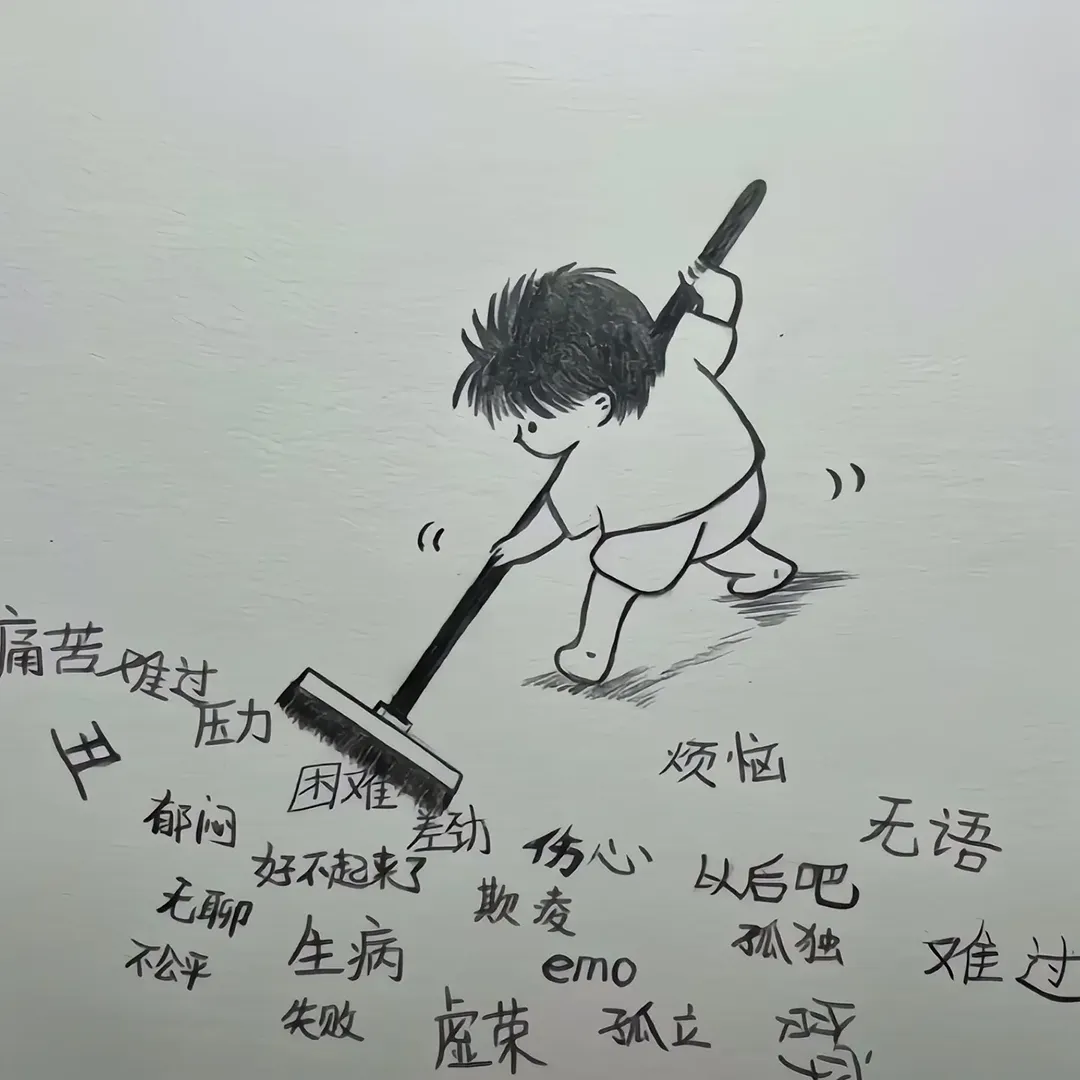 痛苦
难过
压力
丑
烦恼
困难
郁闷
差劲
无语
伤心
好不起来了
以后吧
无聊
欺凌
孤独
生病
不公平
emo
难过
失败
虚荣
孤立